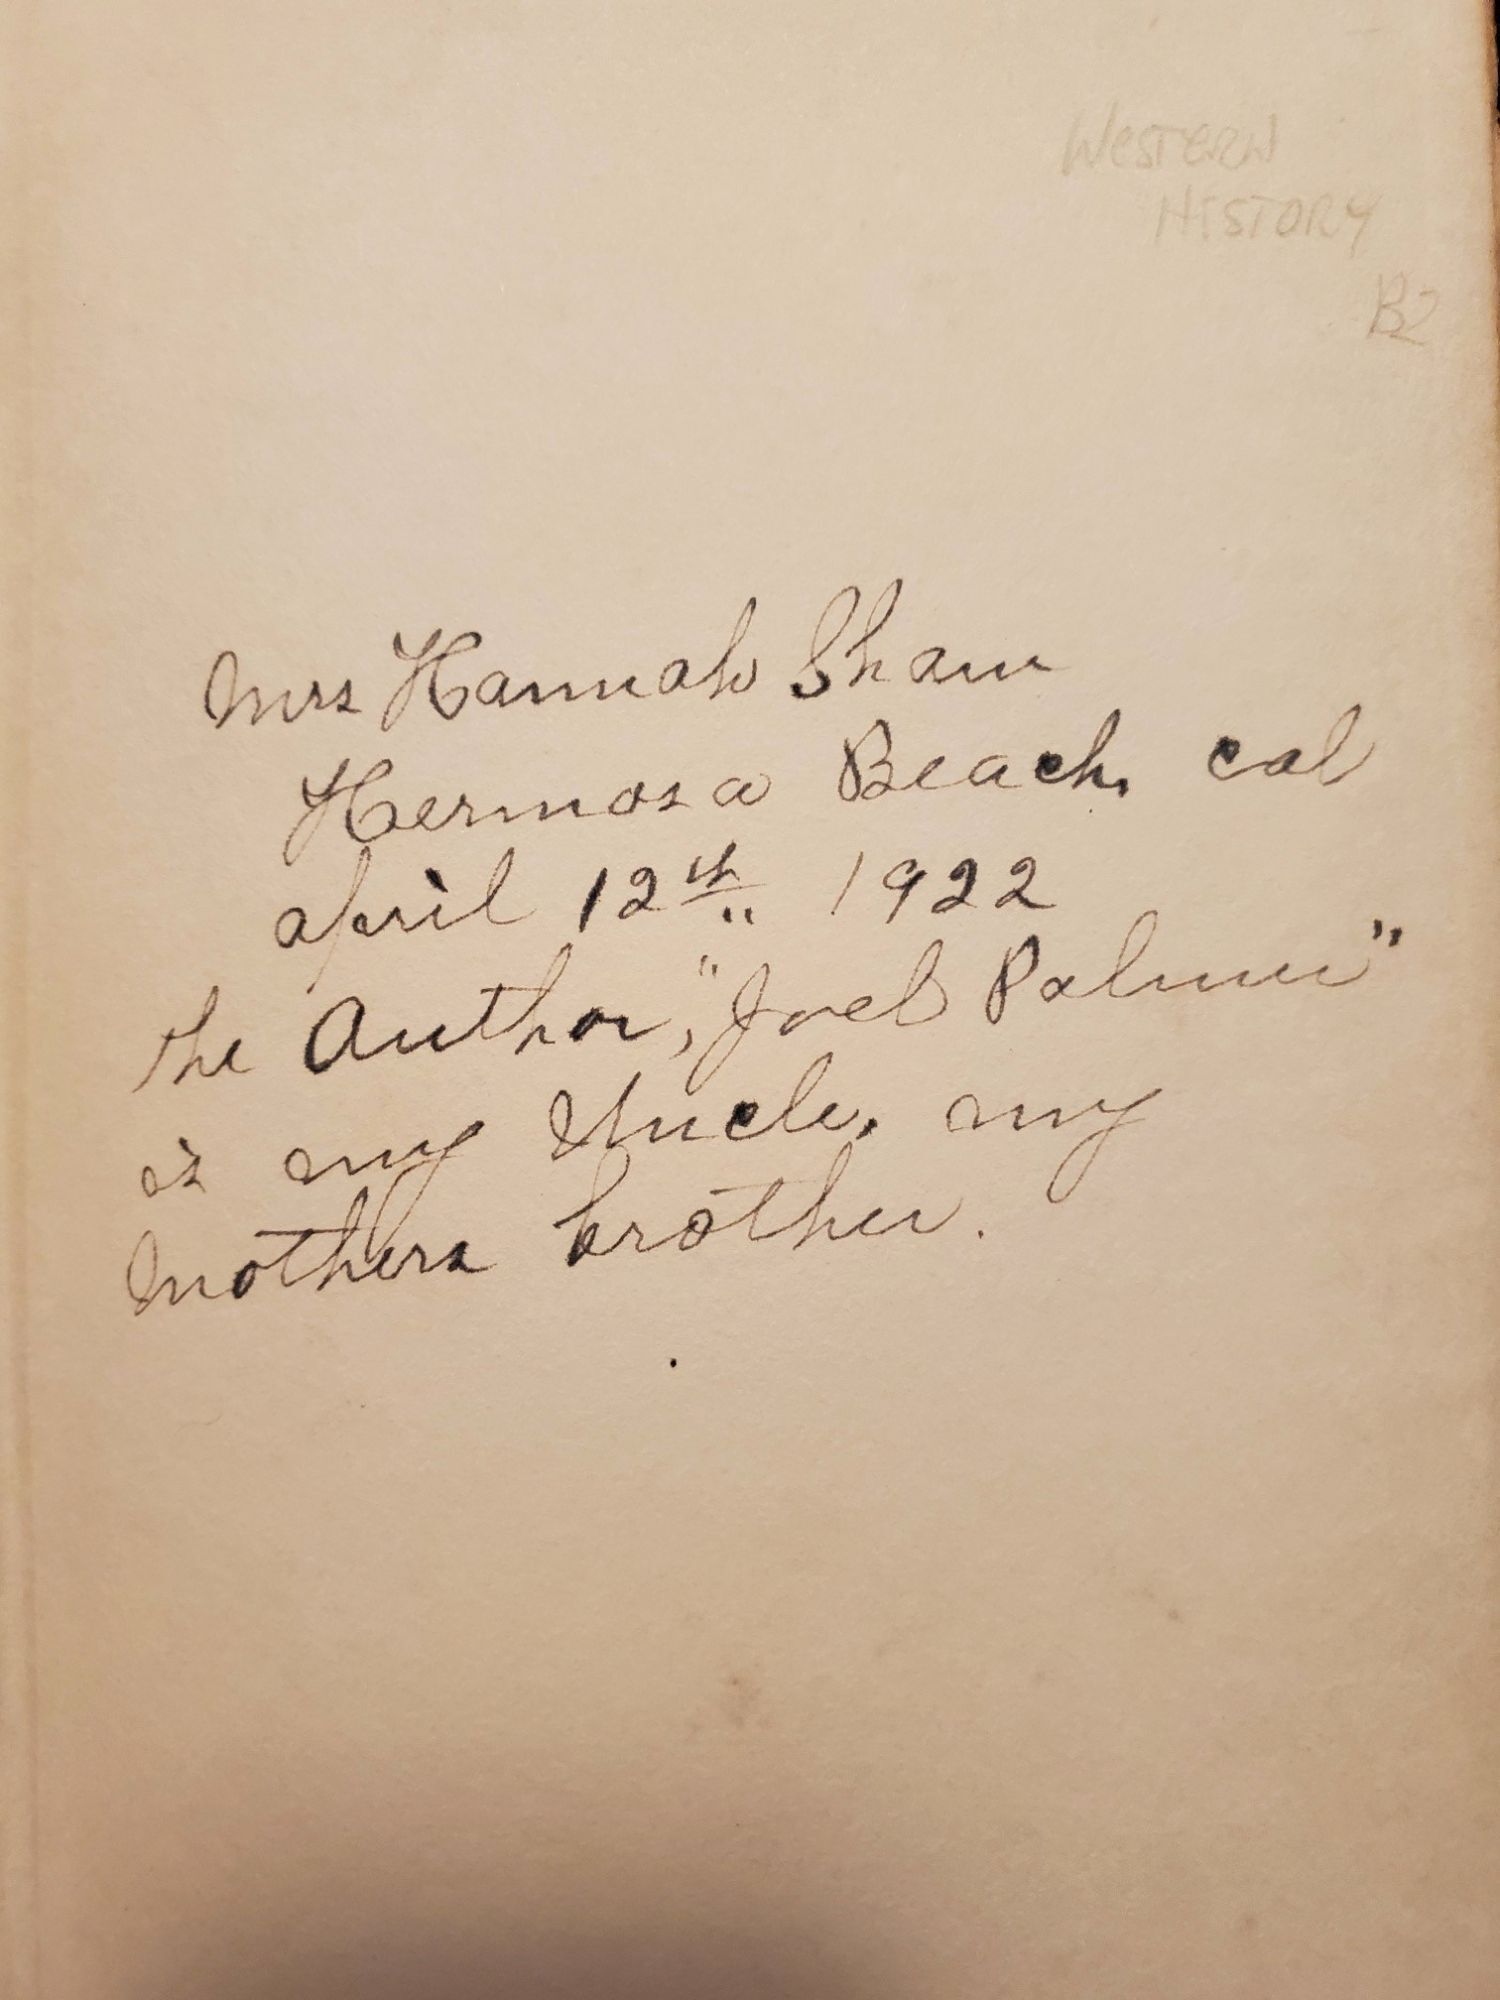 WESTERN
HISTORY
B2
Mrs Hannah Shaw
Hermosa Beach, cal
april 12th 1922
the Author, "Joel Palmer"
is my Uncle, my
Mothers brother.